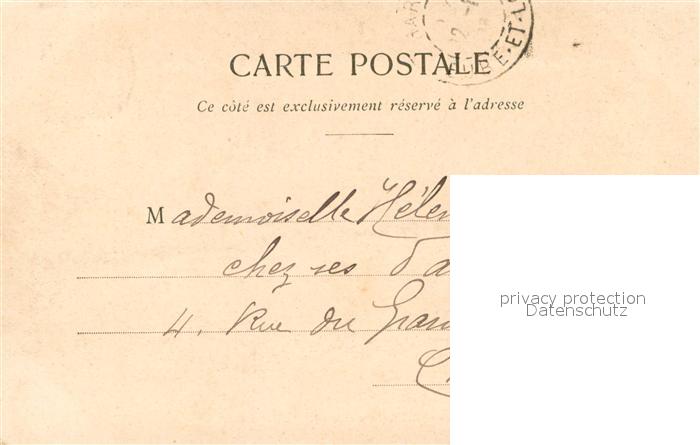 CARTE POSTALE
Ce côté est exclusivement réservé à l'adresse
Mademoiselle Hélen
chez ses
4, Rue du
privacy protection
Datenschutz